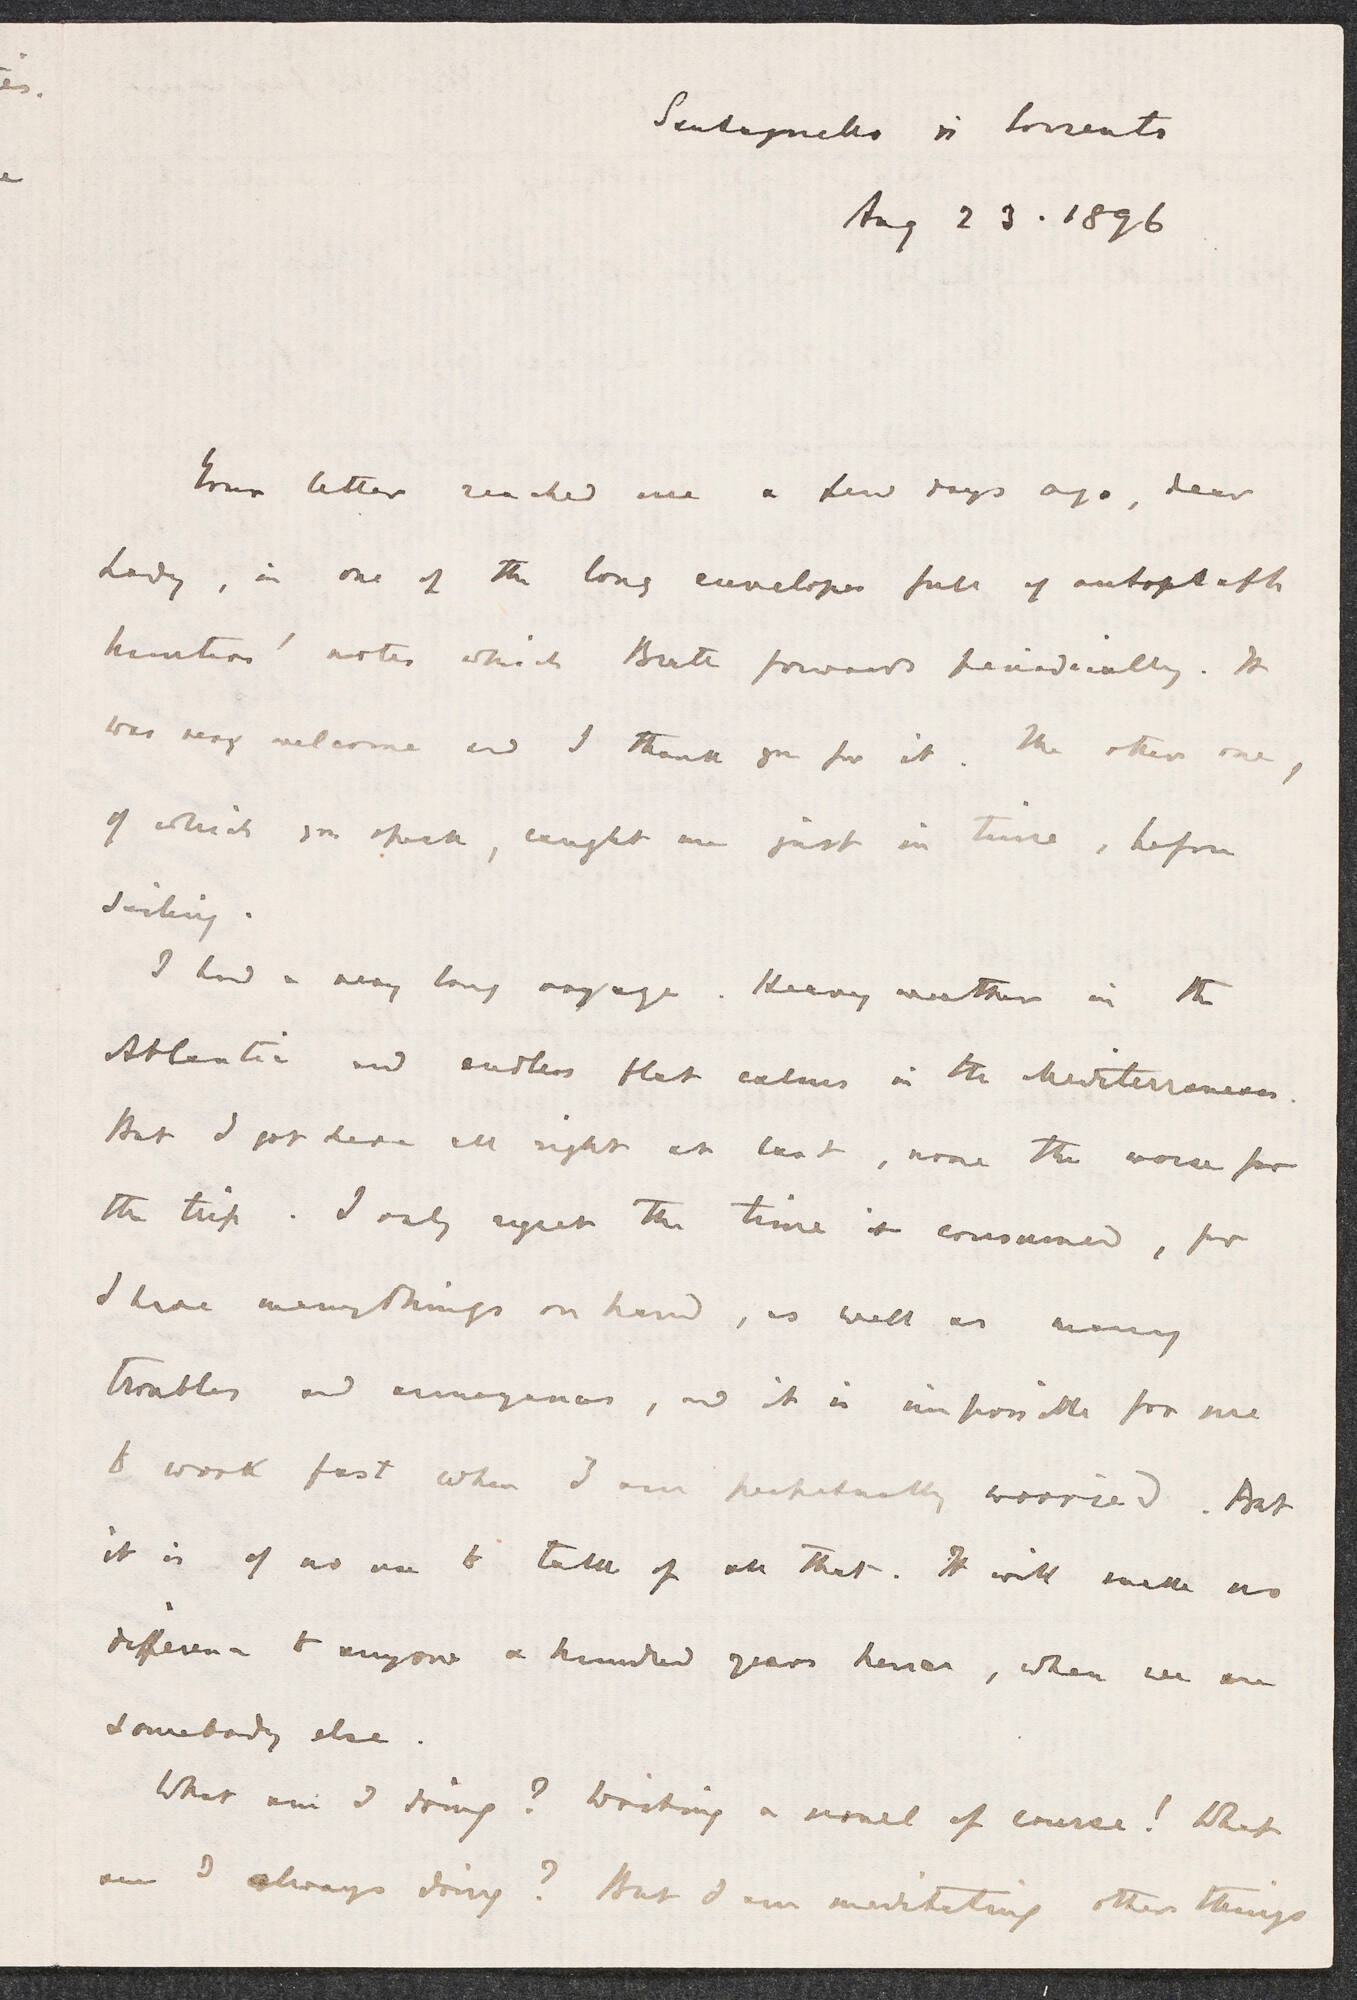 Santagnello di Sorrento
Aug 23. 1896
Your letter reached me a few days ago, dear
Lady, in one of the long envelopes full of autograph
hunters' notes which Brett forwards periodically. It
was very welcome and I thank you for it. The other one,
of which you speak, caught me just in time, before
sailing.
I had a very long voyage. Heavy weather in the
Atlantic and endless flat calms in the Mediterranean.
But I got here all right at last, none the worse for
the trip. I only regret the time it consumed, for
I have many things on hand, as well as many
troubles and annoyances, and it is impossible for me
to work fast when I am perpetually worried. But
it is of no use to talk of all that. It will make no
difference to anyone a hundred years hence, when we are
somebody else.
What am I doing? Writing a novel of course! What
am I always doing? But I am meditating other things